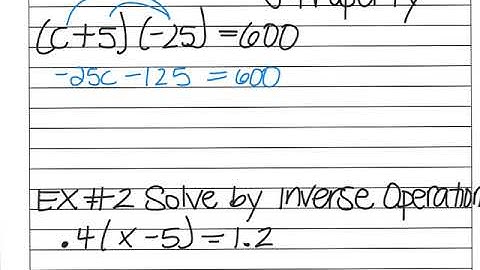 Property
(c+5)(-25)=600
-25c-125=600
EX#2 Solve by Inverse Operation
.4(x-5)=1.2